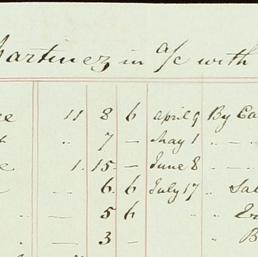 Martinez in a/c with
11 8 6 April 9 By Ca
" 7 — May 1 " — "
1 . 15 — June 8 " —
6 . 6 July 17 " Sal
" — 5 6 "
" — 3 — " B